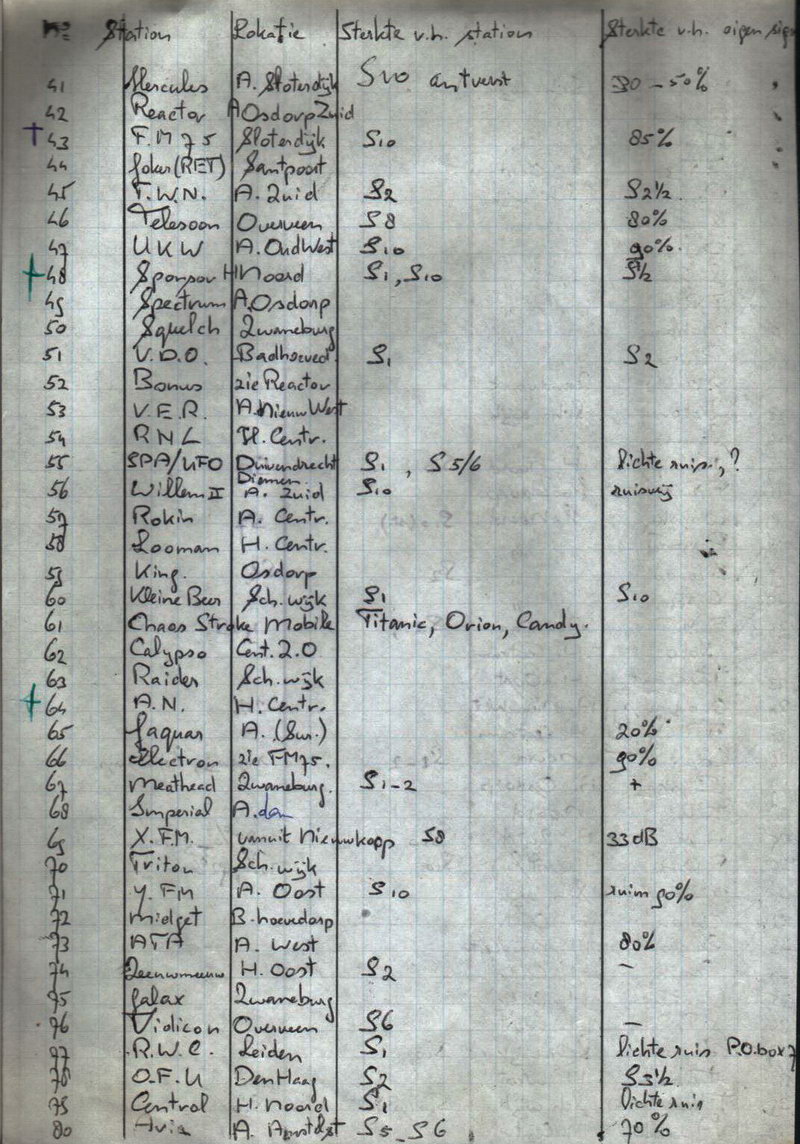 No Station Lokatie Sterkte v.h. station Sterkte v.h. eigen sign
41 Hercules A. Sloterdijk S10 30 - 50%
42 Reactor A Osdorp Zuid
43 F.M 75 Sloterdijk S10 85%
44 Joker (RET) Santpoort
45 T.W.N. A. Zuid S2 S2 1/2
46 Telesoon Overveen S8 80%
47 UKW A. Oud West S10 90%
48 Sponsor H Noord S1, S10 S1/2
49 Spectrum A. Osdorp
50 Squelch Zwaneburg
51 V.D.O. Badhoeved. S1 S2
52 Bonus zie Reactor
53 V.E.R. A. Nieuw West
54 RNL H. Centr.
55 SPA/UFO Duivendrecht Diemen S1, S5/6 lichte ruis, ?
56 Willem II A. Zuid S10 ruisvrij
57 Rokin A. Centr.
58 Looman H. Centr.
59 King. Osdorp
60 Kleine Beer Sch. wijk S1 S10
61 Chaos Stroke Mobile Titanic, Orion, Candy.
62 Calypso Cent. 2.0
63 Raider Sch. wijk
64 A.N. H. Centr.
65 Jaguar A. (Sur.) 20%
66 Electron zie FM75. 90%
67 Meathead Zwaneburg. S1-2 +
68 Imperial A.dam
69 X.F.M. vanuit Nieuwkoop S8 33 dB
70 Triton Sch. wijk
71 Y.FM A. Oost S10 ruim 90%
72 Midget B. hoevedorp
73 ATA A. West 80%
74 Zeemeeuw H. Oost S2 -
75 Galax Zwaneburg
76 Vidicon Overveen S6 -
77 R.W.C. Leiden S1 lichte ruis P.O. box 7
78 O.F.U Den Haag S2 S3 1/2
79 Central H. Noord S1 lichte ruis
80 Avia A. Amstelst S5-S6 70%